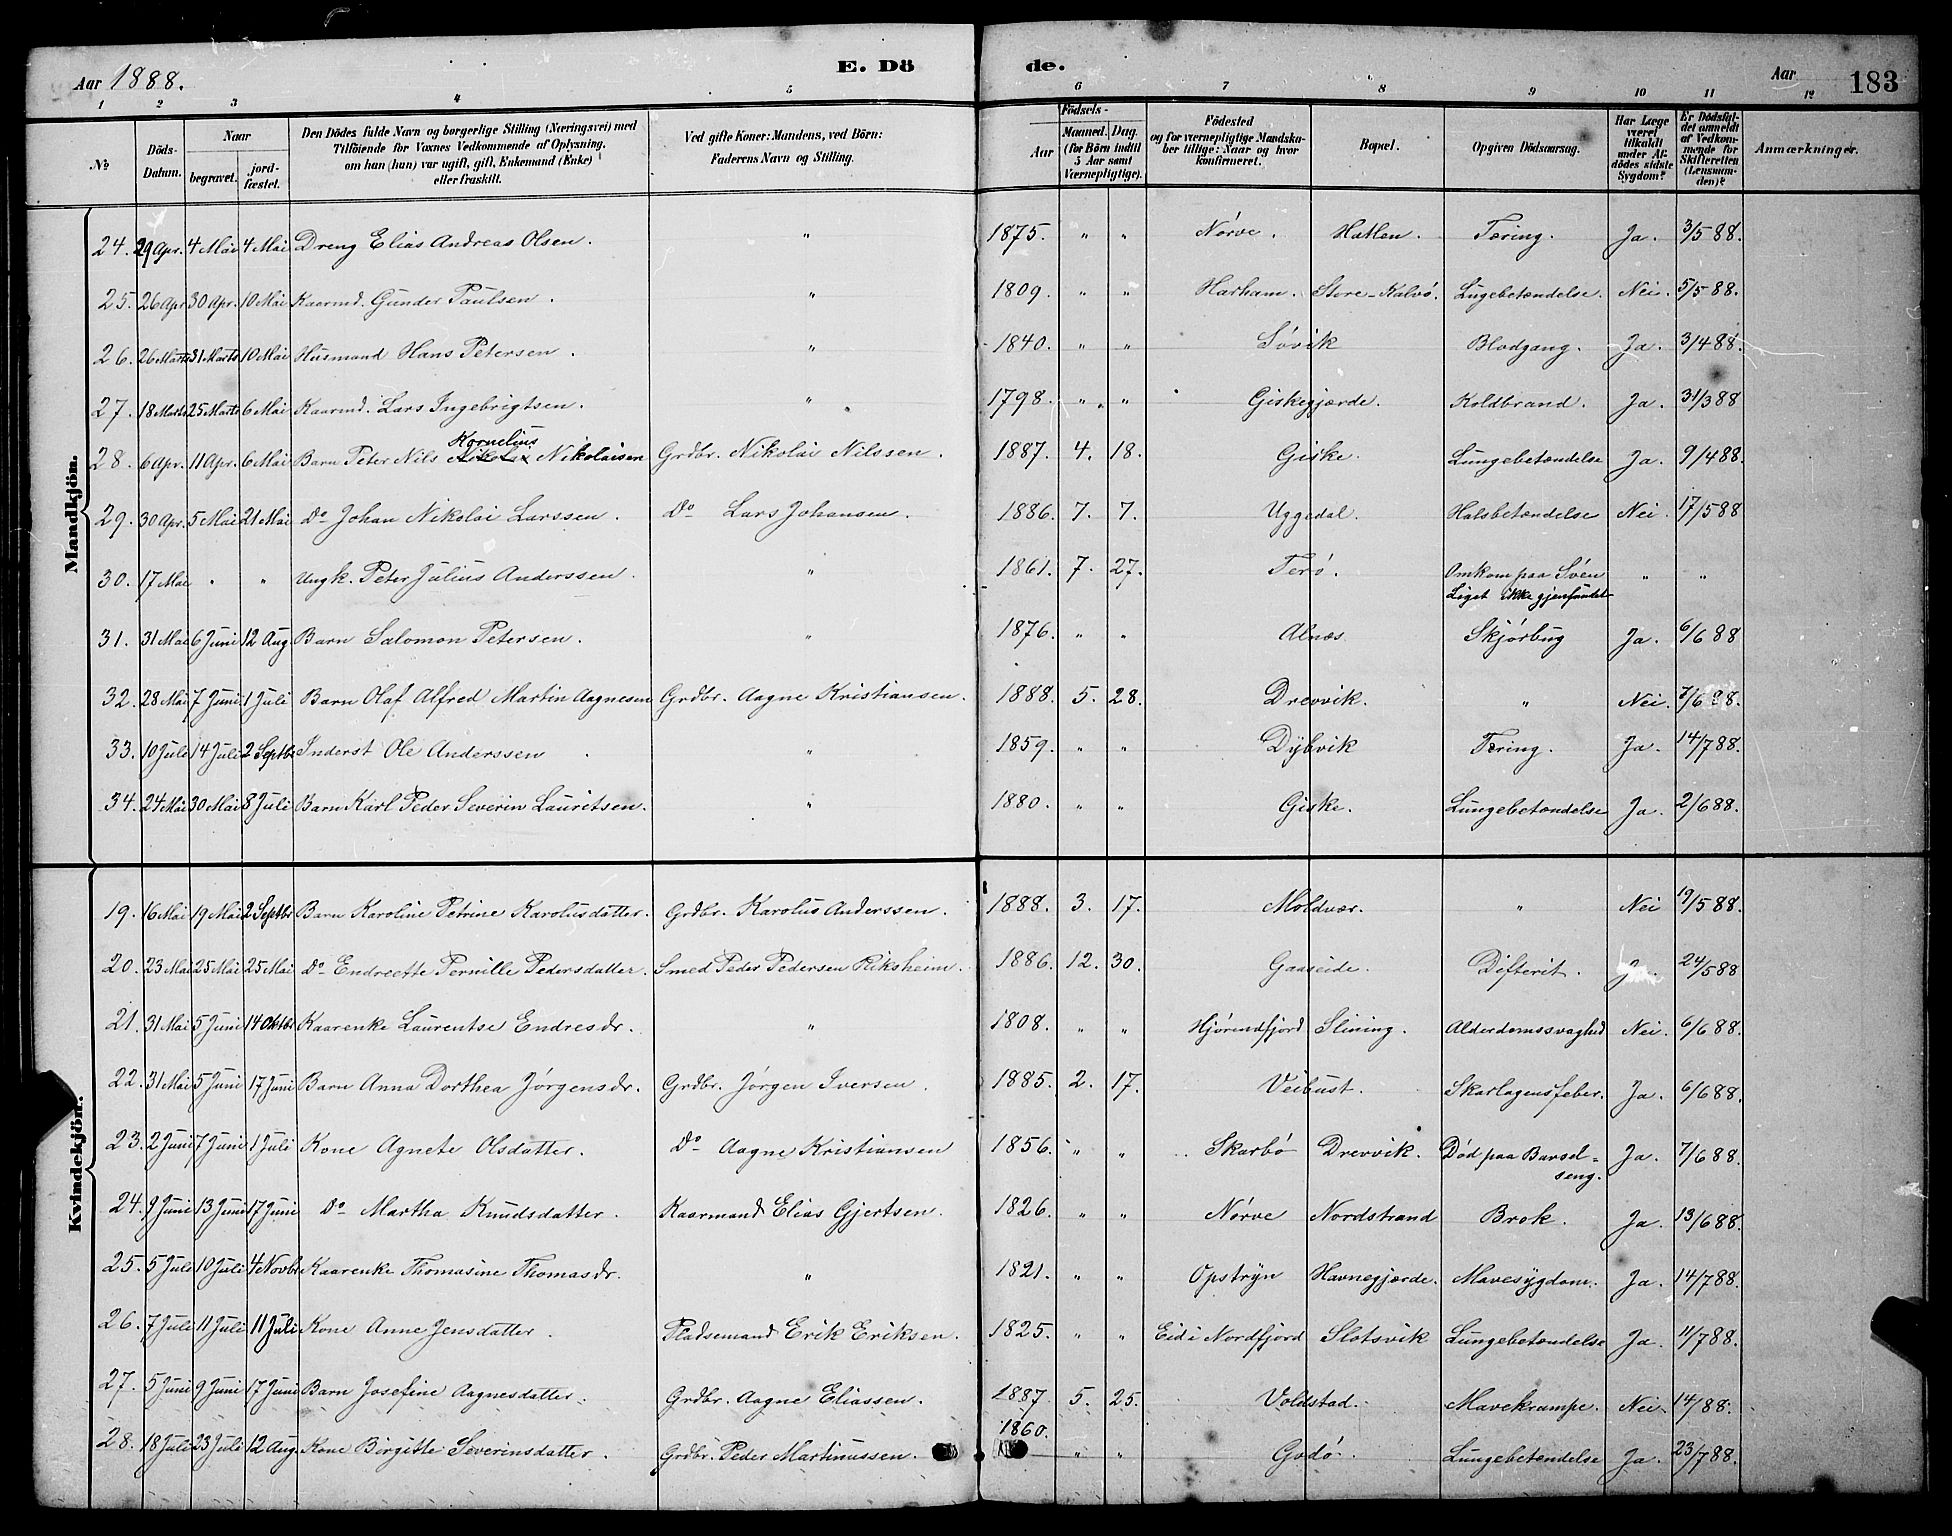 Aar 1888. E. Dö de. Aar 183
1 2 3 4 5 6 7 8 9 10 11 12
No Döds-Datum. Naar begravet. jordfæstet. Den Dödes fulde Navn og borgerlige Stilling (Næringsvei) med Tilföiende for Voxnes Vedkommende af Oplysning, om han (hun) var ugift, gift, Enkemand (Enke) eller fraskilt. Ved gifte Koner: Mandens, ved Börn: Faderens Navn og Stilling. Födsels- Aar Maaned. Dag. (for Börn indtil 5 Aar samt Værnepligtige). Födested og for værnepligtige Mandskaber tillige: Naar og hvor konfirmeret. Bopæl. Opgiven Dödsaarsag. Har Læge været tilkaldt under Afdödes sidste Sygdom? Er Dödsfaldet anmeldt af Vedkommende for Skifteretten (Lensmanden)? Anmærkninger.
Mandkjön.
24. 29 Apr. 4 Mai 4 Mai Dreng Elias Andreas Olsen. " 1875. " " Nørve. Hatlen. Tæring. Ja. 3/5 88.
25. 26 Apr 30 Apr. 10 Mai Kaarmd. Gunder Paulsen. " 1809. " " Harham. Store-Kalvø. Lugebetændelse. Nei. 5/5 88.
26. 26 Marts 31 Marts 10 Mai Husmand Hans Petersen. " 1840. " " Søvik Blodgang. Ja. 3/4 88.
27. 18 Marts 25 Marts 6 Mai Kaarmd. Lars Ingebrigtsen. " 1798. " " Giskegjærde. Koldbrand. Ja. 31/3 88
Kornelius
28. 6 Apr. 11 Apr. 6 Mai Barn Peter Nils Nikolai Nikolaisen Grdbr. Nikolai Nilssen. 1887. 4. 18. Giske. Lungebetændelse Ja. 9/4 88.
29. 30 Apr. 5 Mai 21 Mai Do Johan Nikolai Larssen. Do Lars Johansen. 1886. 7. 7. Uggedal. Halsbetændelse Nei. 17/5 88
30. 17 Mai " " Ungk. Peter Julius Anderssen. " 1861. 7. 27. Terø. Omkom paa Søen " "
Liget ikke gjenfundet
31. 31 Mai 6 Juni 12 Aug. Barn Salomon Petersen. " 1876. " " Alnæs. Skjørbug Ja. 6/6 88
32. 28 Mai 7 Juni 1 Juli Barn Olaf Alfred Martin Aagnesen Grdbr. Aagne Kristiansen. 1888. 5. 28. Drevvik. " Nei. 7/6 88.
33. 10 Juli 14 Juli 2 Septbr Inderst Ole Anderssen. " 1859. " " Dybvik Tæring. Ja. 14/7 88.
34. 24 Mai 30 Mai 8 Juli Barn Karl Peder Severin Lauritsen. " 1880. " " Giske. Lungebetændelse Ja. 2/6 88.
Kvindekjön.
19. 16 Mai 19 Mai 2 Septbr Barn Karoline Petrine Karolusdatter. Grdbr. Karolus Anderssen. 1888. 3. 17. Moldvær. " Nei 19/5 88.
20. 23 Mai 25 Mai 25 Mai Do Endreette Pernille Pedersdatter. Smed Peder Pedersen Riksheim. 1886. 12. 30. Gaaseide. Difterit. Ja. 24/5 88
21. 31 Mai 5 Juni 14 Oktbr Kaarenke Laurentse Endresdr. " 1808. " " Hjørendfjord Slining. Alderdomssvaghed Nei. 6/6 88.
22. 31 Mai 5 Juni 17 Juni Barn Anna Dorthea Jørgensdr. Grdbr. Jørgen Iversen. 1885. 2. 17. Veibust. Skarlagensfeber. Ja. 6/6 88.
23. 2 Juni 7 Juni 1 Juli Kone Agnete Olsdatter. Do Aagne Kristiansen 1856. " " Skarbø Drevvik. Død paa Barsel=seng. Ja. 7/6 88.
24. 9 Juni 13 Juni 17 Juni Do Martha Knudsdatter. Kaarmand Elias Gjertsen. 1826. " " Nørve Nordstrand Brok. Ja. 13/6 88.
25. 5 Juli 10 Juli 4 Novbr Kaarenke Thomasine Thomasdr. " 1821. " " Opstryn Havnegjærde. Mavesygdom. Ja. 14/7 88.
26. 7 Juli 11 Juli 11 Juli Kone Anne Jensdatter. Pladsemand Erik Eriksen. 1825. " " Eid i Nordfjord Slotsvik Lungebetændelse Ja. 11/7 88.
27. 5 Juni 9 Juni 17 Juni Barn Josefine Aagnesdatter. Grdbr. Aagne Eliassen. 1887. 5. 25. Voldstad. Mavekrampe. Nei. 14/88.
28. 18 Juli 23 Juli 12 Aug. Kone Birgitte Severinsdatter. Grdbr. Peder Martinussen. 1860. " " Godø. Lungebetændelse Ja. 23/7 88.